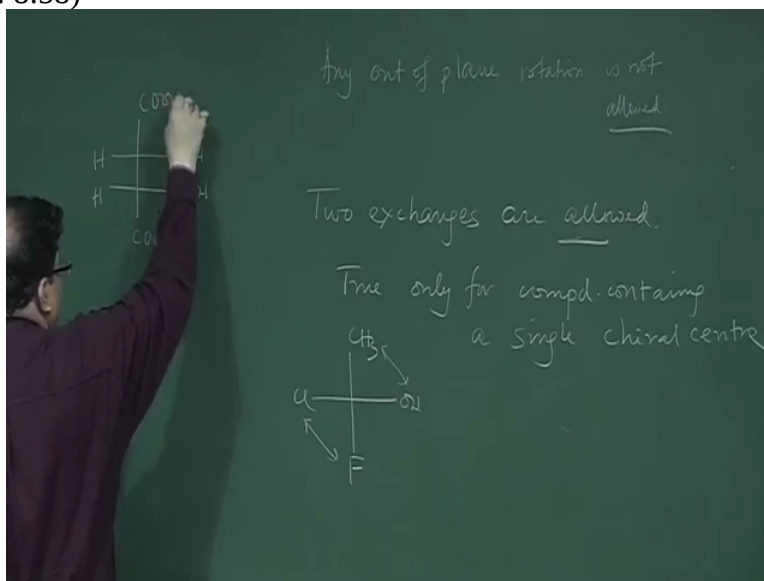 Any out of plane rotation is not
allowed
Two exchanges are allowed.
True only for compd. containing
a single chiral centre
H
H
H
CH3
Cl
OH
F